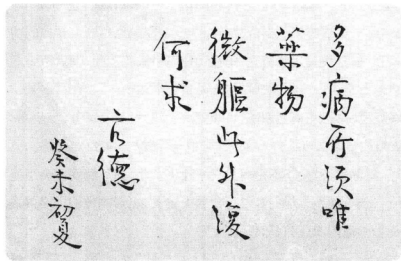 多病所須唯
藥物
微軀此外復
何求
德
癸未初夏